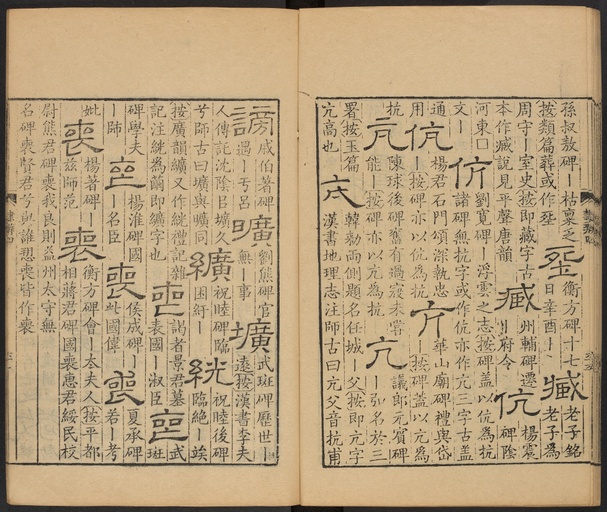 孫叔敖碑｜枯稾乏
按類篇葬或作㘸
衡方碑十七
日辛酉｜｜
老子銘
老子爲
周守｜室史按即藏字古
本作臧說見平聲唐韻
州輔碑遷
｜府令
楊震
碑陰
河東□
文｜
劉寬碑｜浮雲之志按碑蓋以伉爲抗
諸碑無抗字或作伉亦作亢三字古蓋
通
用
楊君石門頌深執忠
｜按碑亦以伉爲抗
華山廟碑禮與岱
｜按碑蓋以亢爲
抗
陳球後碑奮有過寇未嘗
能｜按碑亦以亢爲抗
議郎元賓碑
｜弘名於三
署按玉篇
亢高也
韓勑兩側題名任城｜父按即亢字
漢書地理志注師古曰亢父音抗甫
謗
戚伯著碑
遇｜于呂
曠
劉熊碑官
無｜事
壙
武班碑歷世｜
遠按漢書李夫
人傳託沈陰㠯壙久
兮師古曰壙與曠同
纊
祝睦碑臨
困紆｜
絖
祝睦後碑
臨絶｜竢
按廣韻纊又作絖禮記雜
記注絖爲繭即纊字也
謁者景君墓
表國｜淑臣
武
班
碑學夫
｜師
楊淮碑國
｜名臣
喪
侯成碑｜
此國偉
喪
夏承碑
若｜考
妣
喪
楊著碑｜
茲師范
喪
衡方碑會｜夳夫人按平都
相蔣君碑國喪惠君綏民校
尉熊君碑喪我良則益州太守無
名碑喪賢君兮與誰愬喪皆作喪